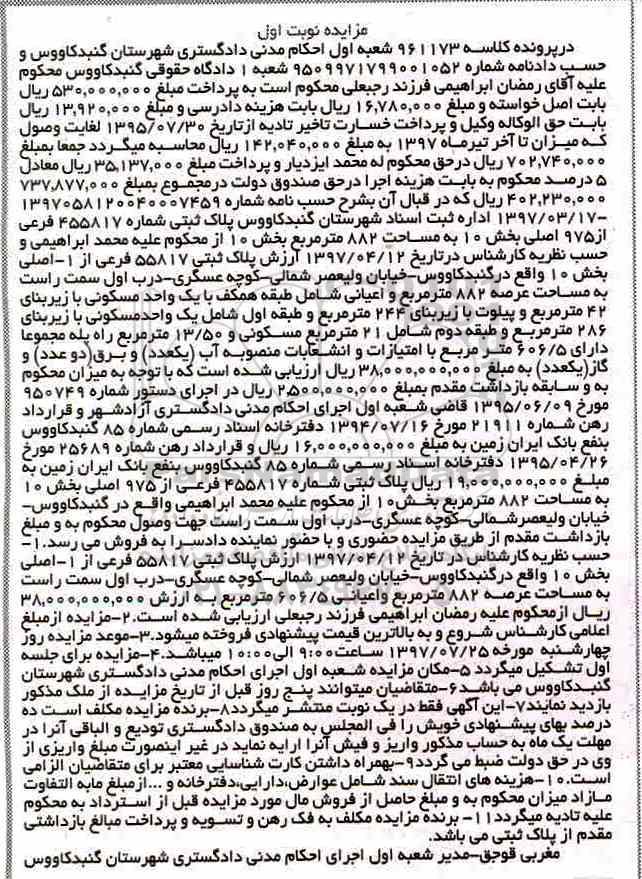 مزایده نوبت اول
درپرونده کلاسه ۹۶۱۱۷۳ شعبه اول احکام مدنی دادگستری شهرستان گنبدکاووس و
حسب دادنامه شماره ۹۵۰۹۹۷۱۷۹۹۰۰۱۰۵۲ شعبه ۱ دادگاه حقوقی گنبدکاووس محکوم
علیه آقای رمضان ابراهیمی فرزند رجبعلی محکوم است به پرداخت مبلغ ۵۳۰,۰۰۰,۰۰۰ ریال
بابت اصل خواسته و مبلغ ۱۶,۷۸۰,۰۰۰ ریال بابت هزینه دادرسی و مبلغ ۱۳,۹۲۰,۰۰۰ ریال
بابت حق الوکاله وکیل و پرداخت خسارت تاخیر تادیه ازتاریخ ۱۳۹۵/۰۷/۳۰ لغایت وصول
که میزان تا آخر تیرماه ۱۳۹۷ به مبلغ ۱۴۲,۰۴۰,۰۰۰ ریال محاسبه میگردد جمعا بمبلغ
۷۰۲,۷۴۰,۰۰۰ ریال درحق محکوم له محمد ایزدیار و پرداخت مبلغ ۳۵,۱۳۷,۰۰۰ ریال معادل
۵ درصد محکوم به بابت هزینه اجرا درحق صندوق دولت درمجموع بمبلغ ۷۳۷,۸۷۷,۰۰۰
۴۰۲,۲۳۰,۰۰۰ ریال که در قبال آن بشرح حسب نامه شماره ۱۳۹۷۰۵۸۱۲۰۰۴۰۰۰۷۴۵۹
-۱۳۹۷/۰۳/۱۷ اداره ثبت اسناد شهرستان گنبدکاووس پلاک ثبتی شماره ۴۵۵۸۱۷ فرعی
از۹۷۵ اصلی بخش ۱۰ به مساحت ۸۸۲ مترمربع بخش ۱۰ از محکوم علیه محمد ابراهیمی و
حسب نظریه کارشناس درتاریخ ۱۳۹۷/۰۴/۱۲ ارزش پلاک ثبتی ۵۵۸۱۷ فرعی از ۱-اصلی
بخش ۱۰ واقع درگنبدکاووس-خیابان ولیعصر شمالی-کوچه عسگری-درب اول سمت راست
به مساحت عرصه ۸۸۲ مترمربع و اعیانی شامل طبقه همکف با یک واحد مسکونی با زیربنای
۴۲ مترمربع و پیلوت با زیربنای ۲۴۴ مترمربع و طبقه اول شامل یک واحدمسکونی با زیربنای
۲۸۶ مترمربع و طبقه دوم شامل ۲۱ مترمربع مسکونی و ۱۳/۵۰ مترمربع راه پله مجموعا
دارای ۶۰۶/۵ متر مربع با امتیازات و انشعابات منصوبه آب (یکعدد) و برق(دو عدد) و
گاز(یکعدد) به مبلغ ۳۸,۰۰۰,۰۰۰,۰۰۰ ریال ارزیابی شده است که با توجه به میزان محکوم
به و سابقه بازداشت مقدم بمبلغ ۲,۵۰۰,۰۰۰,۰۰۰ ریال در اجرای دستور شماره ۹۵۰۷۴۹
مورخ ۱۳۹۵/۰۶/۰۹ قاضی شعبه اول اجرای احکام مدنی دادگستری آزادشهر و قرارداد
رهن شماره ۲۱۹۱۱ مورخ ۱۳۹۴/۰۷/۱۶ دفترخانه اسناد رسمی شماره ۸۵ گنبدکاووس
بنفع بانک ایران زمین به مبلغ ۱۶,۰۰۰,۰۰۰,۰۰۰ ریال و قرارداد رهن شماره ۲۵۶۸۹ مورخ
۱۳۹۵/۰۴/۲۶ دفترخانه اسناد رسمی شماره ۸۵ گنبدکاووس بنفع بانک ایران زمین به
مبلغ ۱۹,۰۰۰,۰۰۰,۰۰۰ ریال پلاک ثبتی شماره ۴۵۵۸۱۷ فرعی از ۹۷۵ اصلی بخش ۱۰
به مساحت ۸۸۲ مترمربع بخش ۱۰ از محکوم علیه محمد ابراهیمی واقع در گنبدکاووس-
خیابان ولیعصرشمالی-کوچه عسگری-درب اول سمت راست جهت وصول محکوم به و مبلغ
بازداشت مقدم از طریق مزایده حضوری و با حضور نماینده دادسرا به فروش می رسد.۱-
حسب نظریه کارشناس در تاریخ ۱۳۹۷/۰۴/۱۲ ارزش پلاک ثبتی ۵۵۸۱۷ فرعی از ۱-اصلی
بخش ۱۰ واقع درگنبدکاووس-خیابان ولیعصر شمالی-کوچه عسگری-درب اول سمت راست
به مساحت عرصه ۸۸۲ مترمربع واعیانی ۶۰۶/۵ مترمربع به ارزش ۳۸,۰۰۰,۰۰۰,۰۰۰
ریال ازمحکوم علیه رمضان ابراهیمی فرزند رجبعلی ارزیابی شده است.۲-مزایده ازمبلغ
اعلامی کارشناس شروع و به بالاترین قیمت پیشنهادی فروخته میشود.۳-موعد مزایده روز
چهارشنبه مورخه ۱۳۹۷/۰۷/۲۵ ساعت۹:۰۰ الی۱۰:۰۰ میباشد.۴-مزایده برای جلسه
اول تشکیل میگردد ۵-مکان مزایده شعبه اول اجرای احکام مدنی دادگستری شهرستان
گنبدکاووس می باشد۶-متقاضیان میتوانند پنج روز قبل از تاریخ مزایده از ملک مذکور
بازدید نمایند۷-این آگهی فقط در یک نوبت منتشر میگردد۸-برنده مزایده مکلف است ده
درصد بهای پیشنهادی خویش را فی المجلس به صندوق دادگستری تودیع و الباقی آنرا در
مهلت یک ماه به حساب مذکور واریز و فیش آنرا ارایه نماید در غیر اینصورت مبلغ واریزی از
وی در حق دولت ضبط می گردد۹-بهمراه داشتن کارت شناسایی معتبر برای متقاضیان الزامی
است.۱۰-هزینه های انتقال سند شامل عوارض،دارایی،دفترخانه و ...ازمبلغ مابه التفاوت
مازاد میزان محکوم به و مبلغ حاصل از فروش مال مورد مزایده قبل از استرداد به محکوم
علیه تادیه میگردد۱۱- برنده مزایده مکلف به فک رهن و تسویه و پرداخت مبالغ بازداشتی
مقدم از پلاک ثبتی می باشد.
مغربی قوجق-مدیر شعبه اول اجرای احکام مدنی دادگستری شهرستان گنبدکاووس